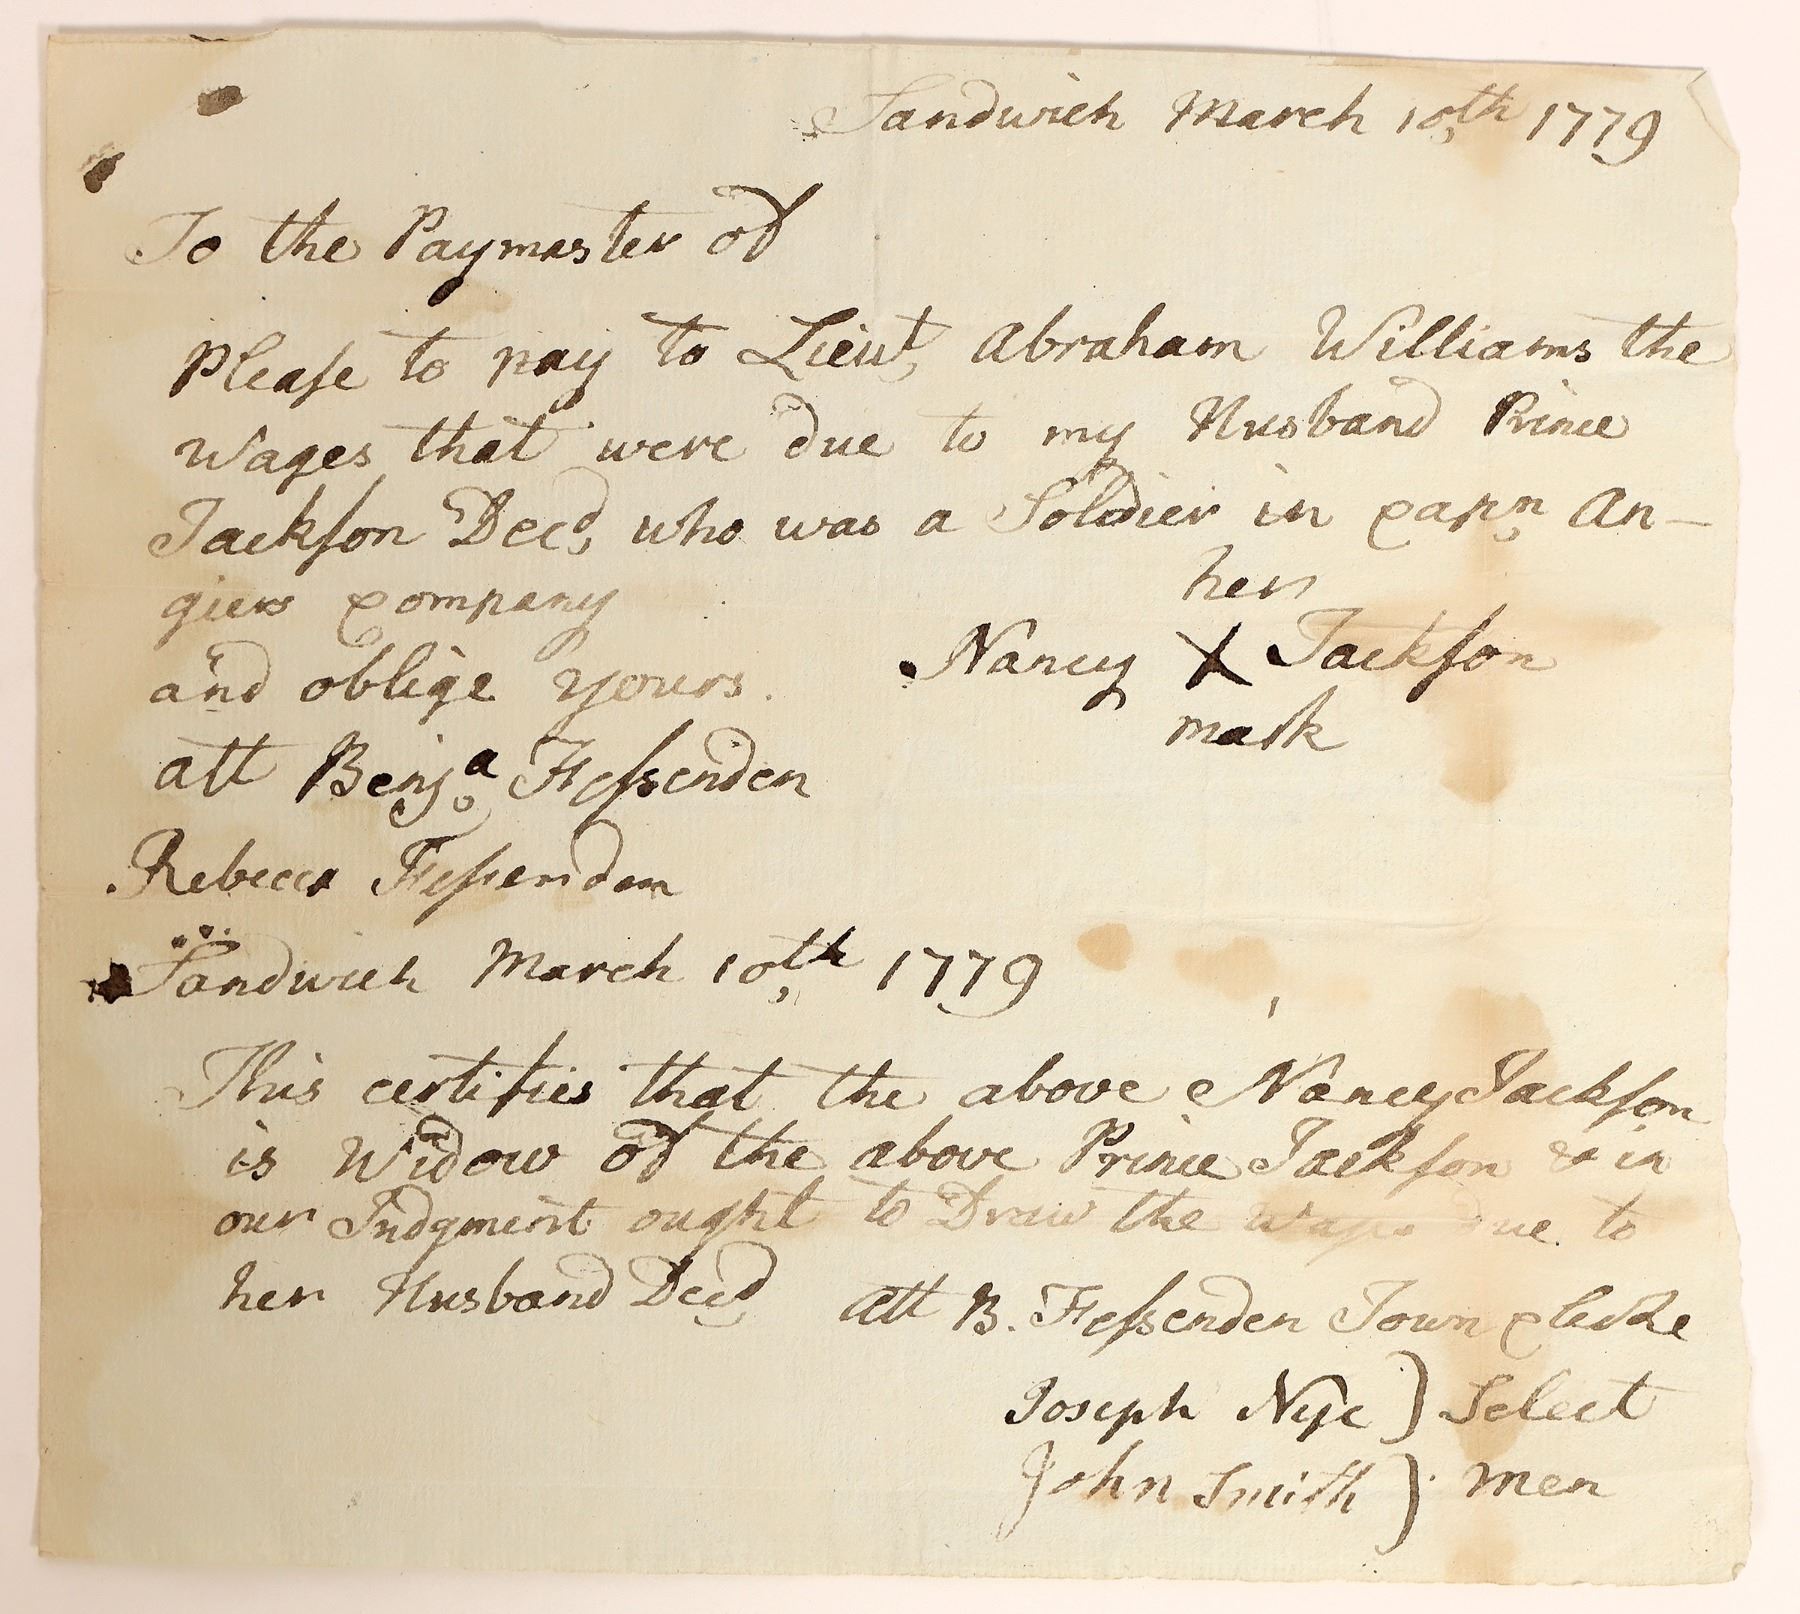 Sandwich March 10th 1779
To the Paymaster of
Please to pay to Lieut, Abraham Williams the
Wages that were due to my Husband Prince
Jackson Decd, who was a Soldier in Capn An-
giers Company
her
and oblige yours. Nancy X Jackson
mark
att Benja Fessenden
Rebecca Fessenden
Sandwich March 10th, 1779
This certifies that the above Nancy Jackson
is Widow of the above Prince Jackson & in
our Judgment ought to Draw the Wages due to
her Husband Decd att B. Fessenden Town Clerke
Joseph Nye } Select
John Smith } men